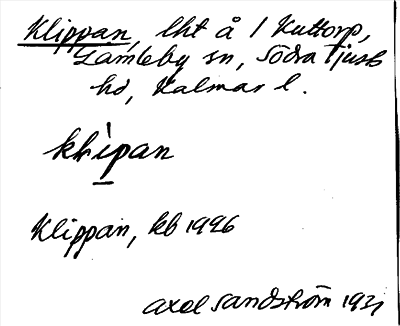 Klippan, lht å 1 Kuttorp,
Gamleby sn, Södra Tjusts
hd, Kalmar l.
klìpan
Klippan, kb 1926
Axel Sandström 1931